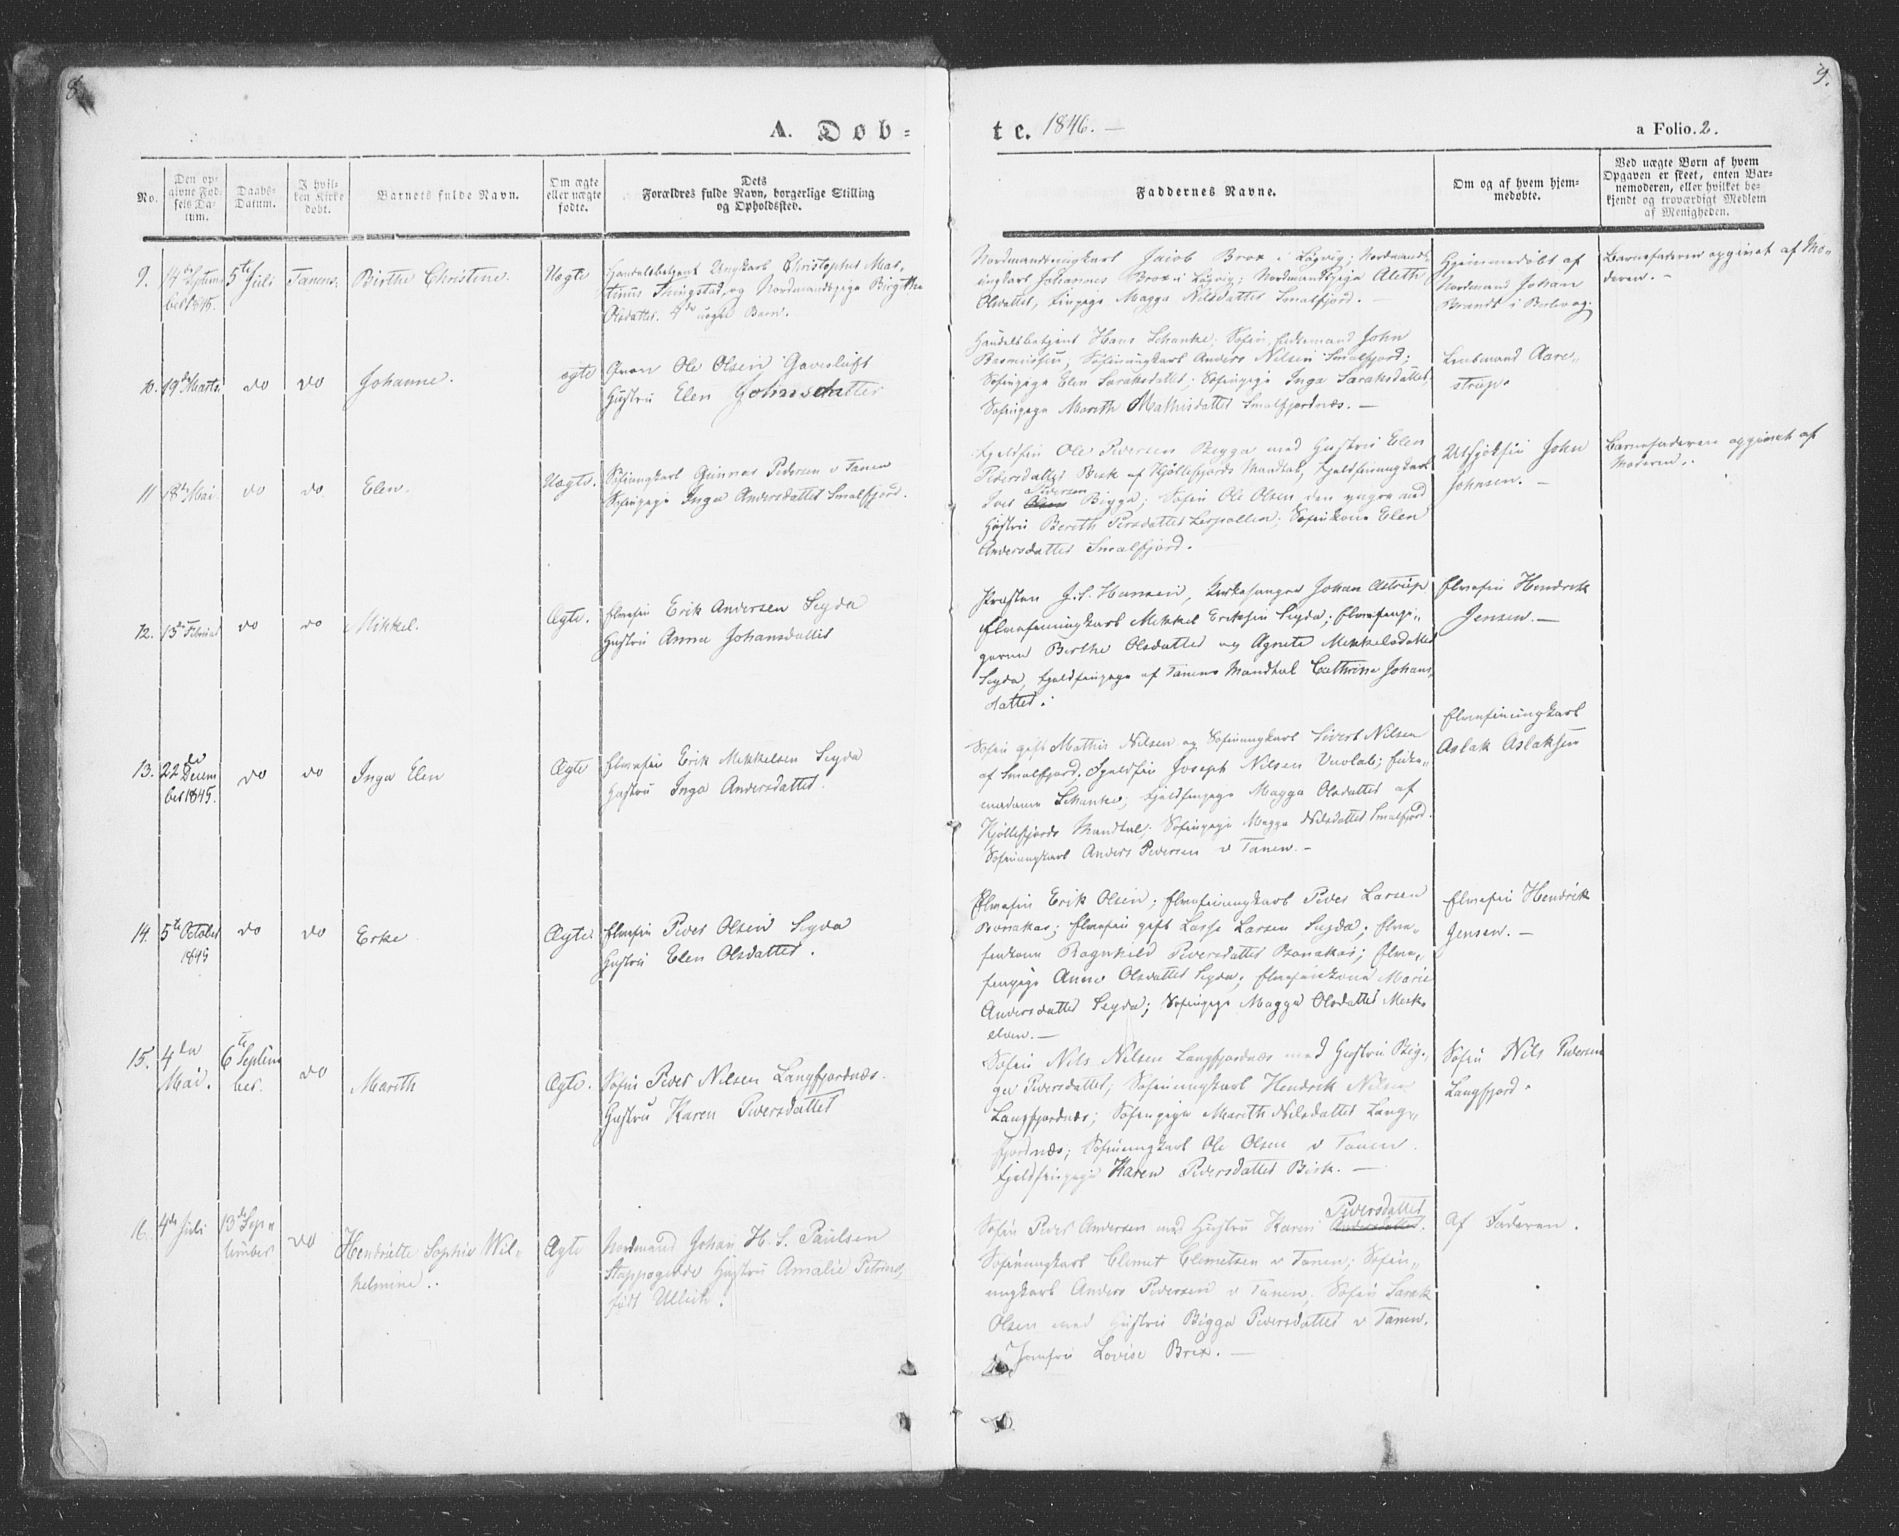 8.
9.
A. Dob-
te. 1846. —
a Folio. 2.
No.
Den op-
givne Fød-
sels Da-
tum.
Daabs-
Datum.
I hvil-
ken Kirke
døbt.
Barnets fulde Navn.
Om ægte
eller uægte
fødte.
Dets
Forældres fulde Navn, borgerlige Stilling
og Opholdssted.
Faddernes Navne.
Om og af hvem hjem-
medøbte.
Ved uægte Børn af hvem
Opgaven er skeet, enten Bar-
nemoderen, eller hvilket be-
kjendt og troværdigt Medlem
af Menigheden.
9.
14de Septem
ber 1845.
5te Juli
Tanens.
Birthe Christine.
Uægte
Handelsbetjent Ungkarl Christopher Mar-
tinus Tringstad, og Nordmandspige Birgithe
Olsdatter. 4de uægte Barn.
Nordmandsungkarl Jacob Brox i Løgvig; Nordmands-
ungkarl Johannes Brox i Løgvig; Nordmandspige Aleth
Olsdatter, Finpige Magga Nilsdatter Smalfjord. —
Hjemmedøbt af
Nordmand Johan
Brandt i Berlevog.
Barnefaderen opgivet af Mo-
deren. —
10.
19de Marts
do
do
Johanne.
ægte
Qvæn Ole Olsen Gavesluft
Hustru Elen Johnsdatter
Handelsbetjent Hans Schanke; Søfin Fedemand John
Rasmussen, Søfinungkarl Anders Nilsen Smalfjord;
Søfinpige Elen Saraksdatter; Søfinpige Inga Saraksdatter
Søfinpige Marith Mathisdatter Smalfjordnæs. —
Lensmand Aare-
strup.
11
18de Mai
do
do.
Elen.
Uægte.
Søfinungkarl Gunnar Pedersen v Tanen
Søfinpige Inga Andersdatter Smalfjord.
Fjeldfin Ole Peersen Bigga med Hustru Elen
Peersdatter Birk af Kjøllefjords Mandtal, Fjeldfinungkarl
Iver Olsen Pedersen Bigga; Søfin Ole Olsen den yngre med
Hustru Bereth Persdatter Lerpollen; Søfinkone Elen
Andersdatter Smalfjord.
Utsjokfin John
Johnsen. —
Barnefaderen opgivet af
Moderen.
12.
15de Februar
do
do
Mikkel.
Ægte.
Elvefin Erik Andersen Seyda
Hustru Anna Johansdatter
Præsten J. S. Hansen, Kirkesanger Johan Astrup
Elvefinungkarl Mikkel Eriksen Seyda; Elvefinpi-
gerne Birthe Olsdatter og Agnete Mikkelsdatter
Seyda, Fjeldfinpige af Tanens Mandtal Cathrine Johans
datter.
Elvefin Hendrik
Jensen. —
13.
22de
Decem
ber 1845.
do
do
Inga Elen
Ægte
Elvefin Erik Mikkelsen Seyda
Hustru Inga Andersdatter.
Søfin gift Mathis Nilsen og Søfinungkarl Sivert Nilsen
af Smalfjord. Fjeldfin Joseph Nilsen Vuolab; Enke-
madame Schanke; Fjeldfinpige Magga Olsdatter af
Kjøllefjords Mandtal; Søfinpige Magga Nilsdatter Smalfjord.
Søfinungkarl Anders Peersen v Tanen. —
Elvefinungkarl
Aslak Aslaksen
14.
5te October
1845
do
do
Erke
Ægte
Elvefin Peder Olsen Seyda
Hustru Elen Olsdatter.
Elvefin Erik Olsen; Elvefinungkarl Peder Larsen
Bonakas; Elvefin gift Lasse Larsen Seyda; Elve-
finkone Ragnhild Peersdatter Bonakas; Elve-
finpige Anne Olsdatter Seyda; Elvefinkone Marie
Andersdatter Seyda; Søfinpige Magga Olsdatter Mesk-
elven. —
Elvefin Hendrik
Jensen. —
15.
4de
Mai.
6te Septem
ber.
do
Marith
Ægte.
Søfin Peder Nilsen Langfjordnæs.
Hustru Karen Peersdatter
Søfin Nils Nilsen Langfjordnæs med Hustru Big-
ga Peersdatter; Søfinungkarl Hendrik Nilsen
Langfjordnæs; Søfinpige Marith Nilsdatter Lang-
fjordnæs; Søfinungkarl Ole Olsen v Tanen.
Fjeldfinpige Karen Peersdatter Birk. —
Søfin Nils Peersen
Langfjord.
16.
4de Juli
13de Sep-
tember
do
Hendriette Sophie Wil-
helmine.
Ægte
Nordmand Johan H. S. Paulsen
Stappogiedde Hustru Amalie Petrine,
født Ullrich.
Søfin Peder Andersen med Hustru Karen Andersdatter. Peersdatter
Søfinungkarl Clemet Clemetsen v Tanen; Søfin-
ungkarl Anders Peersen v Tanen, Søfin Sarak
Olsen med Hustru Bigga Peersdatter v Tanen.
Jomfru Lovise Brox. —
Af Faderen.